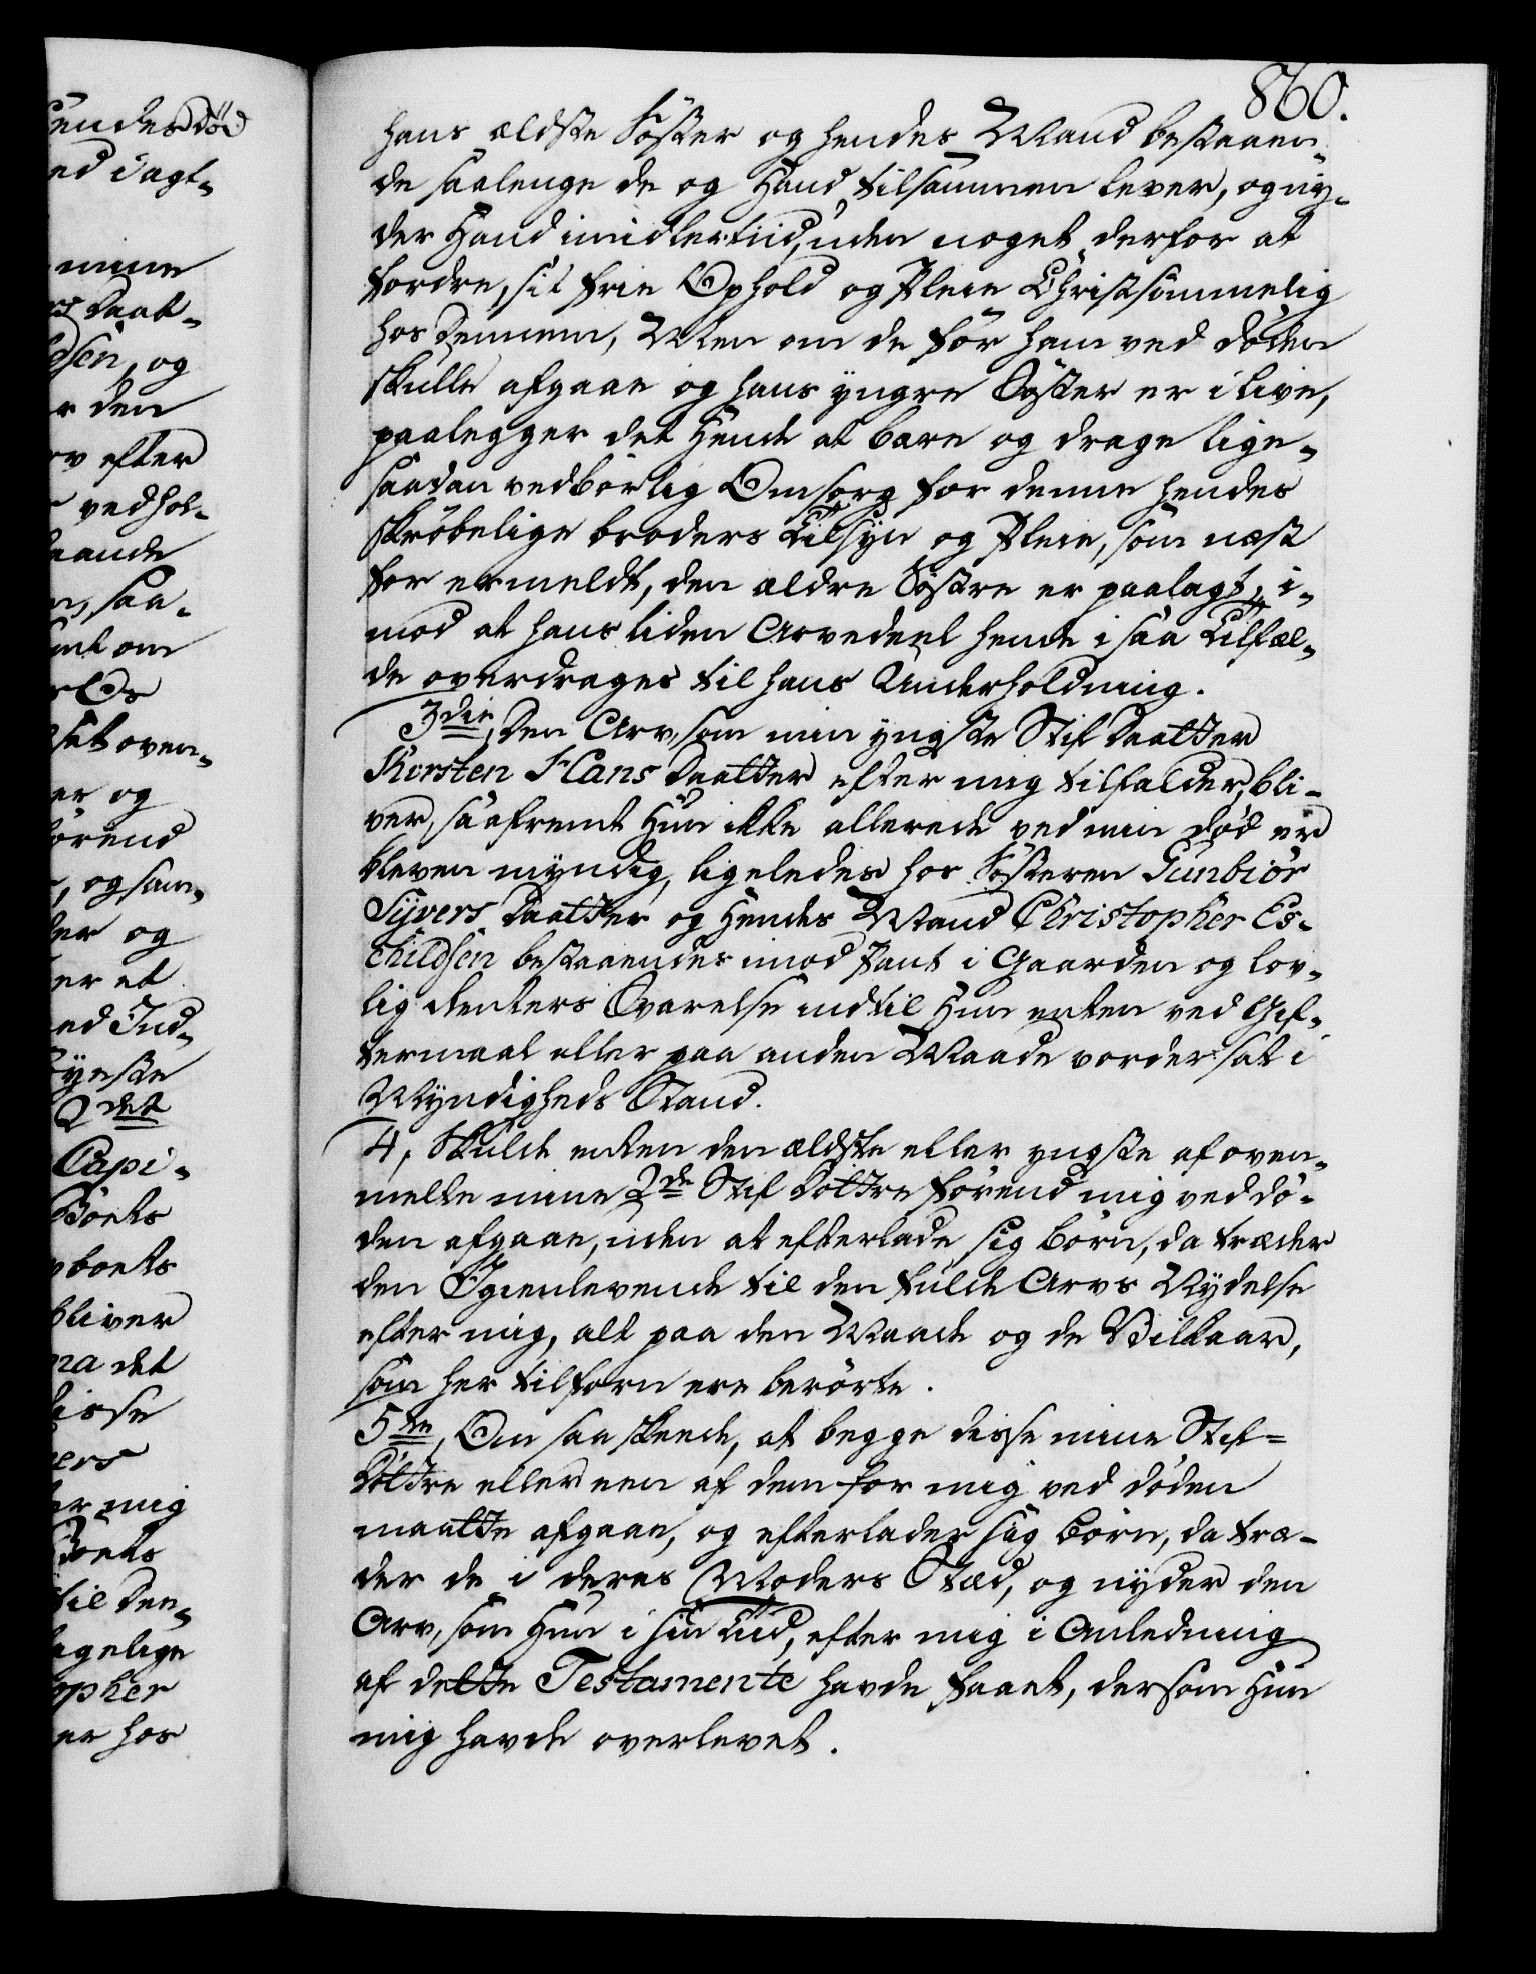 860.
hans ældste Söster og hendes Mand bestaaen-
de saalenge de og Hand tilsammen lever, og ny-
der Hand imidlertiid, uden noget derfor at
fordre, sit frie Ophold og Pleie Christsömmelig
hos dennem, Men om de för ham ved döden
skulle afgaae og hans yngre Söster er i live,
paalegger det Hende at bære og drage lige-
saadan vedbörlig Omsorg for denne hendes
skröbelige broders Tilsyn og Pleie, som næst
for ermeldt, den ældre Söstre er paalagt, i-
mod at hans liden Arvedeel hende i saa Tilfæl-
de overdrages til hans Underholdning.
3die, Den Arv, som min yngste Stif Daatter
Kirsten Hans Daatter efter mig tilfalder, bli-
ver, saafremt Hun ikke allerede ved min död er
bleven myndig, ligeledes hos Sösteren Gunbiör
Syvers Daatter og Hendes Mand Christopher Es-
childsen bestaaendes imod Pant i Gaarden og lov-
lig Renters Svarelse indtil Hun enten ved Gif-
termaal eller paa anden Maade vorder sat i
Myndigheds Stand.
4, Skulde enten den ældste eller yngste af oven-
melte mine 2de Stif Döttre förend mig ved dö-
den afgaae, uden at efterlade sig Börn, da træder
den Igienlevende til den fulde Arvs Nydelse
efter mig, alt paa den Maade og de Vilkaar,
som her tilforn ere berörte.
5te, Om saa skeede, at begge disse mine Stif-
döttre eller een af dem for mig ved döden
maatte afgaae, og efterlader sig Börn, da træ-
der de i deres Moders Stæd, og nyder den
Arv, som Hun i sin Tiid, efter mig i Anledning
af dette Testamente havde faaet, dersom Hun
mig havde overlevet.